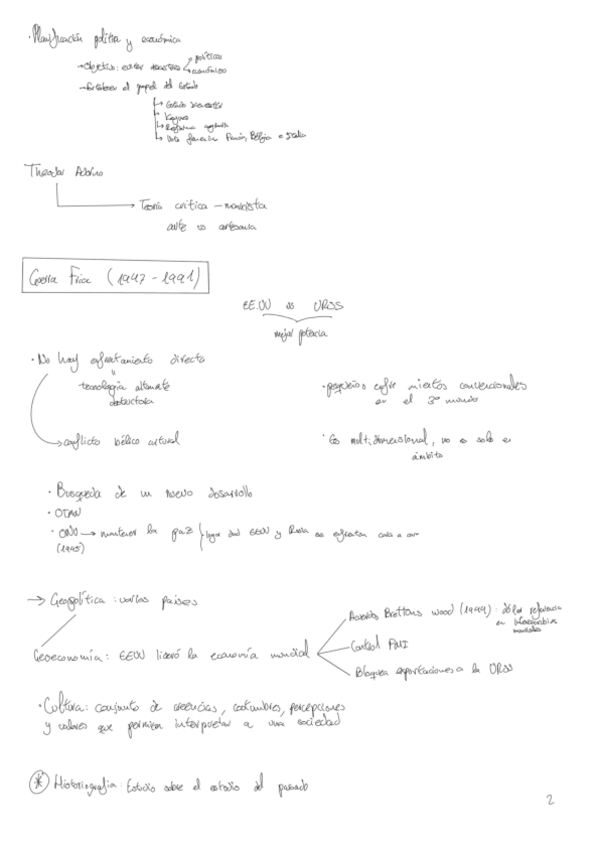 · Planificación política y económica
→ Objetivo: evitar
políticos
económicos
→ fortalecer el papel del Estado
↳ Estado
↳ Keynes
↳ Reforma agraria
↳ Francia, Bélgica e Italia
Theodor Adorno
→ Teoría crítica - marxista
arte vs artesanía
Guerra Fría (1947 - 1991)
EE.UU vs URSS
mejor potencia
· No hay enfrentamiento directo
"
tecnología altamente
destructora
→ conflicto bélico cultural
· pequeños enfrentamientos convencionales
en el 3º mundo
· Es multidimensional, no es solo en
ámbito
· Búsqueda de un nuevo desarrollo
· OTAN
· ONU → mantener la paz } lugar donde EEUU y Rusia se enfrentan cara a cara
(1945)
→ Geopolítica: varios países
Geoeconomía: EEUU lideró la economía mundial
Acuerdos Brettons wood (1944): dólar referencia
en intercambios
mundiales
Control FMI
Bloquea exportaciones a la URSS
· Cultura: conjunto de creencias, costumbres, percepciones
y valores que permiten interpretar a una sociedad
* Historiografía: Estudio sobre el estudio del pasado
2